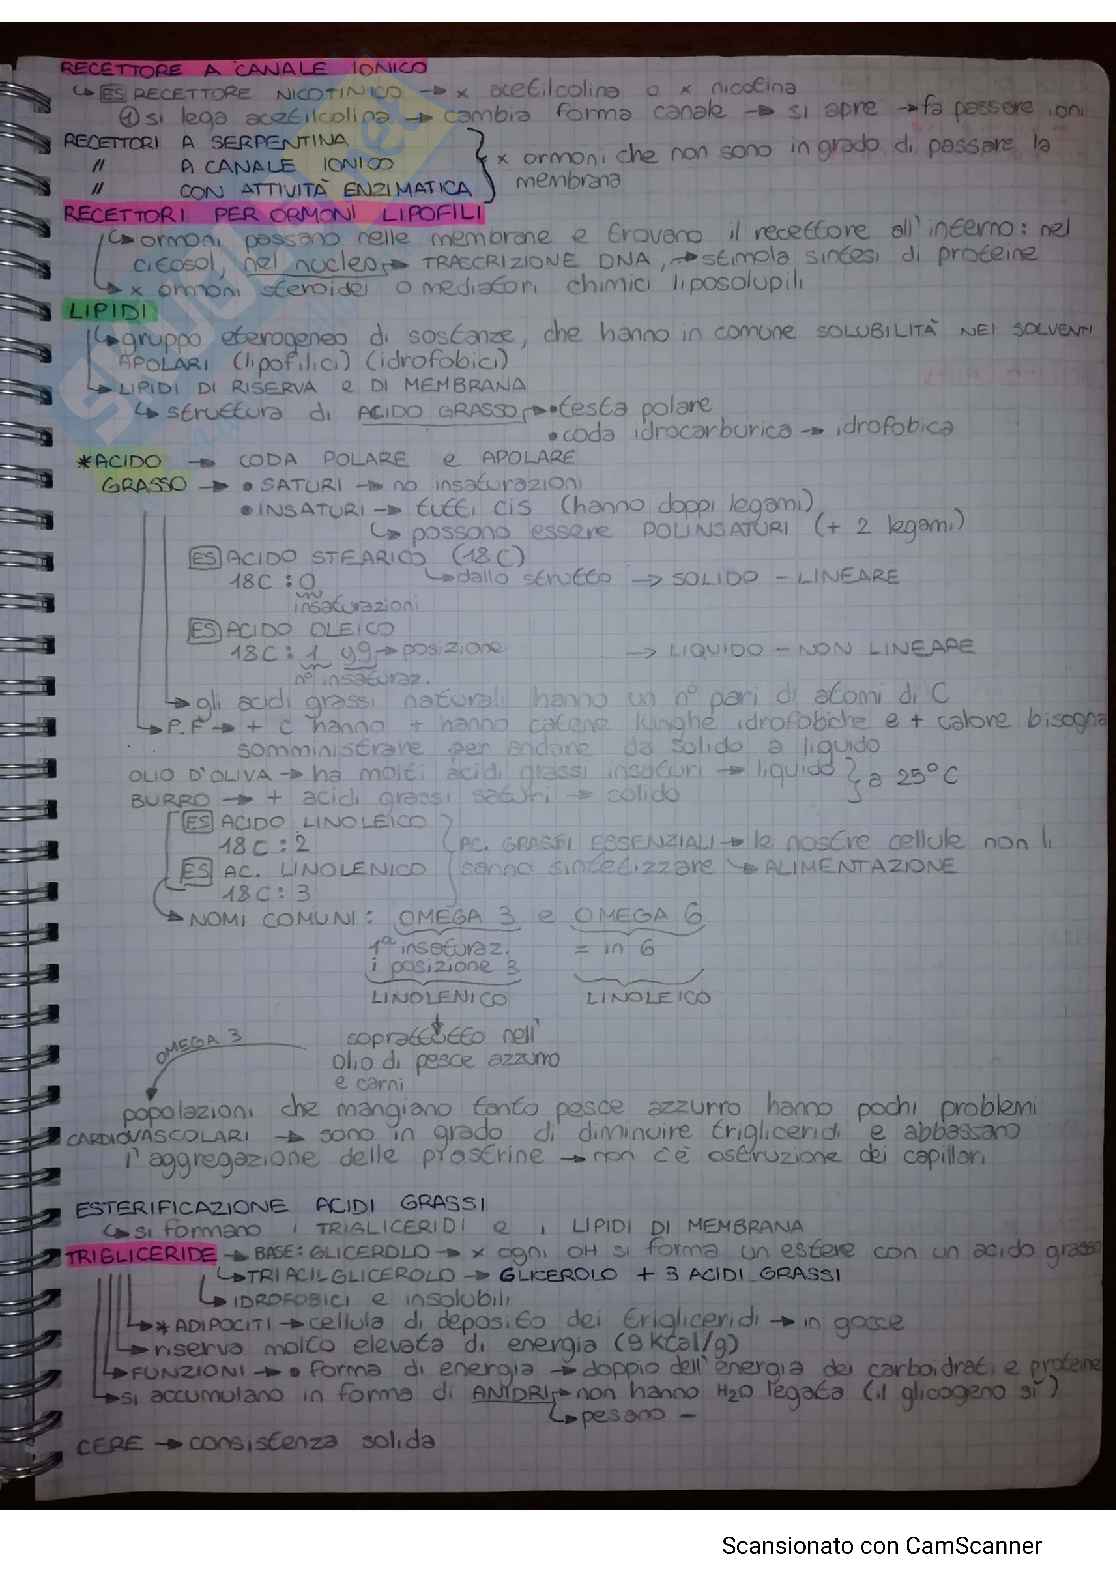 RECETTORE A CANALE IONICO
↳ ES RECETTORE NICOTINICO → x acetilcolina o x nicotina
① si lega acetilcolina → cambia forma canale → si apre → fa passare ioni
RECETTORI A SERPENTINA
// A CANALE IONICO } x ormoni che non sono in grado di passare la
// CON ATTIVITÀ ENZIMATICA membrana
RECETTORI PER ORMONI LIPOFILI
↳ ormoni passano nelle membrane e trovano il recettore all'interno: nel
citosol, nel nucleo → TRASCRIZIONE DNA, → stimola sintesi di proteine
↳ x ormoni steroidei o mediatori chimici liposolupili
LIPIDI
↳ gruppo eterogeneo di sostanze, che hanno in comune SOLUBILITÀ NEI SOLVENTI
APOLARI (lipofilici) (idrofobici)
↳ LIPIDI DI RISERVA e DI MEMBRANA
↳ struttura di ACIDO GRASSO → • testa polare
• coda idrocarburica → idrofobica
*ACIDO → CODA POLARE e APOLARE
GRASSO → • SATURI → no insaturazioni
• INSATURI → tutti cis (hanno doppi legami)
↳ possono essere POLINSATURI (+ 2 legami)
ES ACIDO STEARICO (18 C)
18C : 0 ↳ dallo strutto → SOLIDO - LINEARE
insaturazioni
ES ACIDO OLEICO
18C : 1 y9 → posizione → LIQUIDO - NON LINEARE
n° insaturaz.
↳ gli acidi grassi naturali hanno un n° pari di atomi di C
↳ P.F → + C hanno + hanno catene lunghe idrofobiche e + calore bisogna
somministrare per andare da solido a liquido
OLIO D'OLIVA → ha molti acidi grassi insaturi → liquido } a 25°C
BURRO → + acidi grassi saturi → solido
ES ACIDO LINOLEICO
18C : 2 AC. GRASSI ESSENZIALI → le nostre cellule non li
ES AC. LINOLENICO sanno sintetizzare ↳ ALIMENTAZIONE
18C : 3
↳ NOMI COMUNI : OMEGA 3 e OMEGA 6
1ª insaturaz. = in 6
i posizione 3
LINOLENICO LINOLEICO
OMEGA 3 soprattutto nell'
olio di pesce azzurro
e carni
popolazioni che mangiano tanto pesce azzurro hanno pochi problemi
CARDIOVASCOLARI → sono in grado di diminuire trigliceridi e abbassano
l'aggregazione delle piastrine → non c'è ostruzione dei capillari
ESTERIFICAZIONE ACIDI GRASSI
↳ si formano i TRIGLICERIDI e i LIPIDI DI MEMBRANA
TRIGLICERIDE → BASE: GLICEROLO → x ogni OH si forma un estere con un acido grasso
↳ TRIACILGLICEROLO → GLICEROLO + 3 ACIDI GRASSI
↳ IDROFOBICI e insolubili
↳ * ADIPOCITI → cellula di deposito dei trigliceridi → in gocce
→ riserva molto elevata di energia (9 kcal/g)
→ FUNZIONI → • forma di energia → doppio dell'energia dei carboidrati e proteine
→ si accumulano in forma di ANIDRI → non hanno H2O legata (il glicogeno sì)
↳ pesano -
CERE → consistenza solida
Scansionato con CamScanner